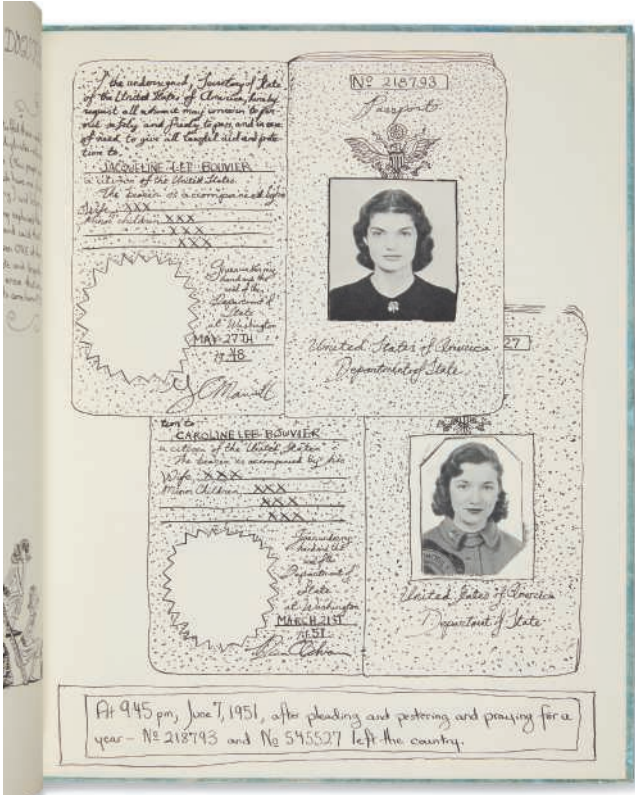 I the undersigned, Secretary of State
of the United States of America, hereby
request all whom it may concern to per-
mit safely and freely to pass, and in case
of need to give all lawful aid and protec
tion to
JACQUELINE LEE BOUVIER
a citizen of the United States.
The bearer is accompanied by his
Wife, XXX
Minor children XXX
XXX
XXX
Given under my
hand and the
seal of the
Department of
State
at Washington
MAY 27TH
1948
Nº 218793
Passport
United States of America
Department of State
27
tion to
CAROLINE LEE BOUVIER
a citizen of the United States
The bearer is accompanied by his
Wife XXX
Minor Children XXX
XXX
XXX
Given under my
hand and the
seal of the
Department of
State
at Washington
MARCH 21ST
1951
United States of America
Department of State
At 9:45 pm, June 7, 1951, after pleading and pestering and praying for a
year - Nº 218793 and Nº 545527 left the country.